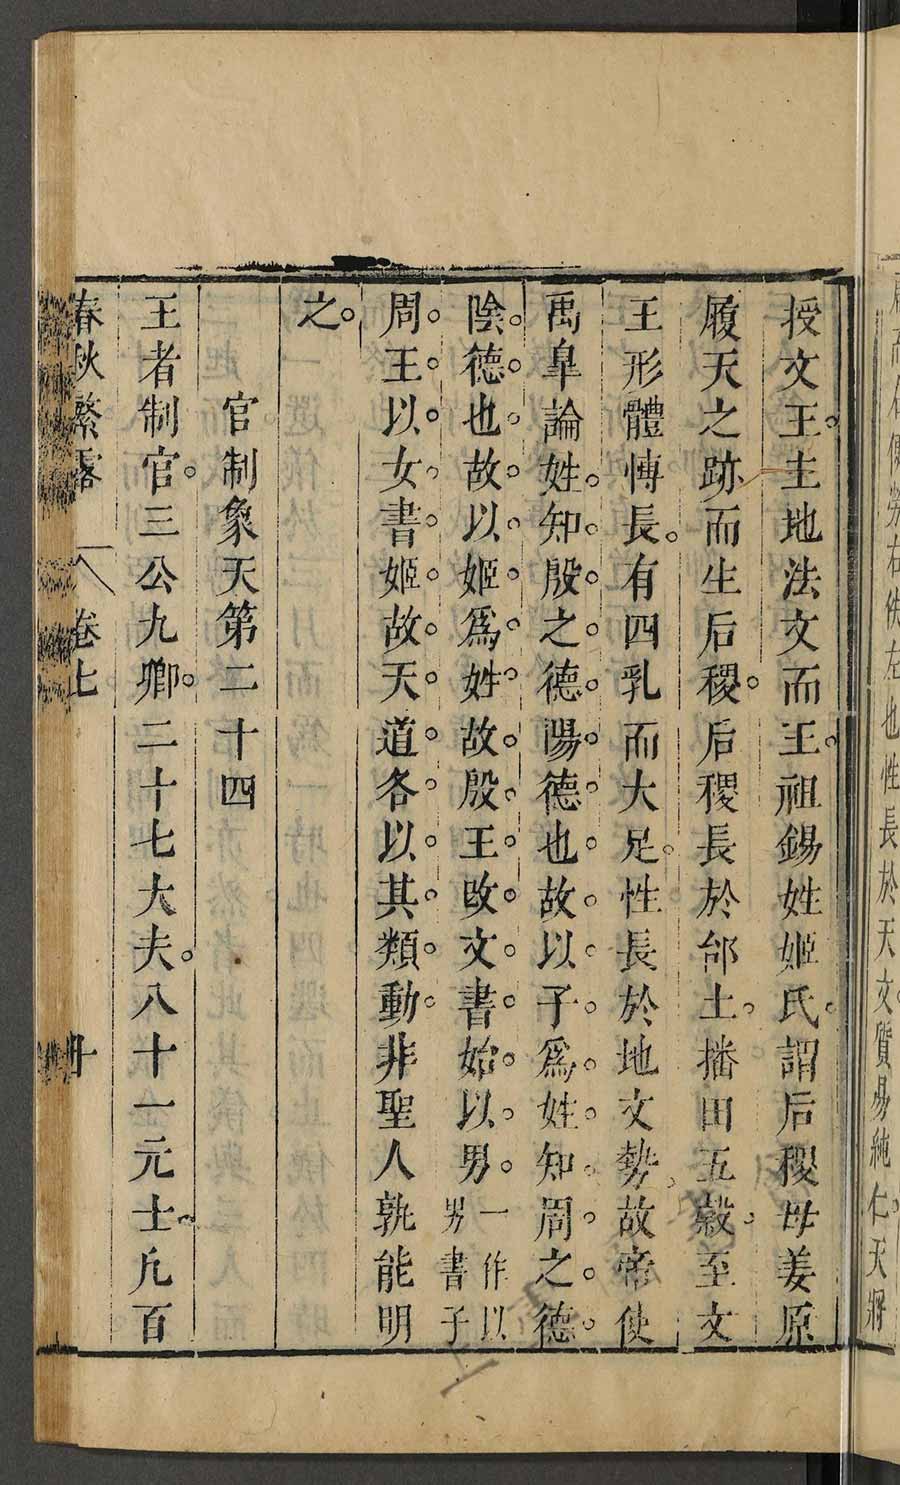 肩高作僂勞右佚左也性長於天文質易純仁天將
授文王主地法文而王祖錫姓姬氏謂后稷母姜原
履天之跡而生后稷后稷長於邰土播田五穀至文
王形體博長有四乳而大足性長於地文勢故帝使
禹臯論姓知殷之德陽德也故以子爲姓知周之德
陰德也故以姬爲姓故殷王改文書始以男一作以男書子
周王以女書姬故天道各以其類動非聖人孰能明
之
官制象天第二十四
王者制官三公九卿二十七大夫八十一元士凡百
春秋繁露 卷七 十